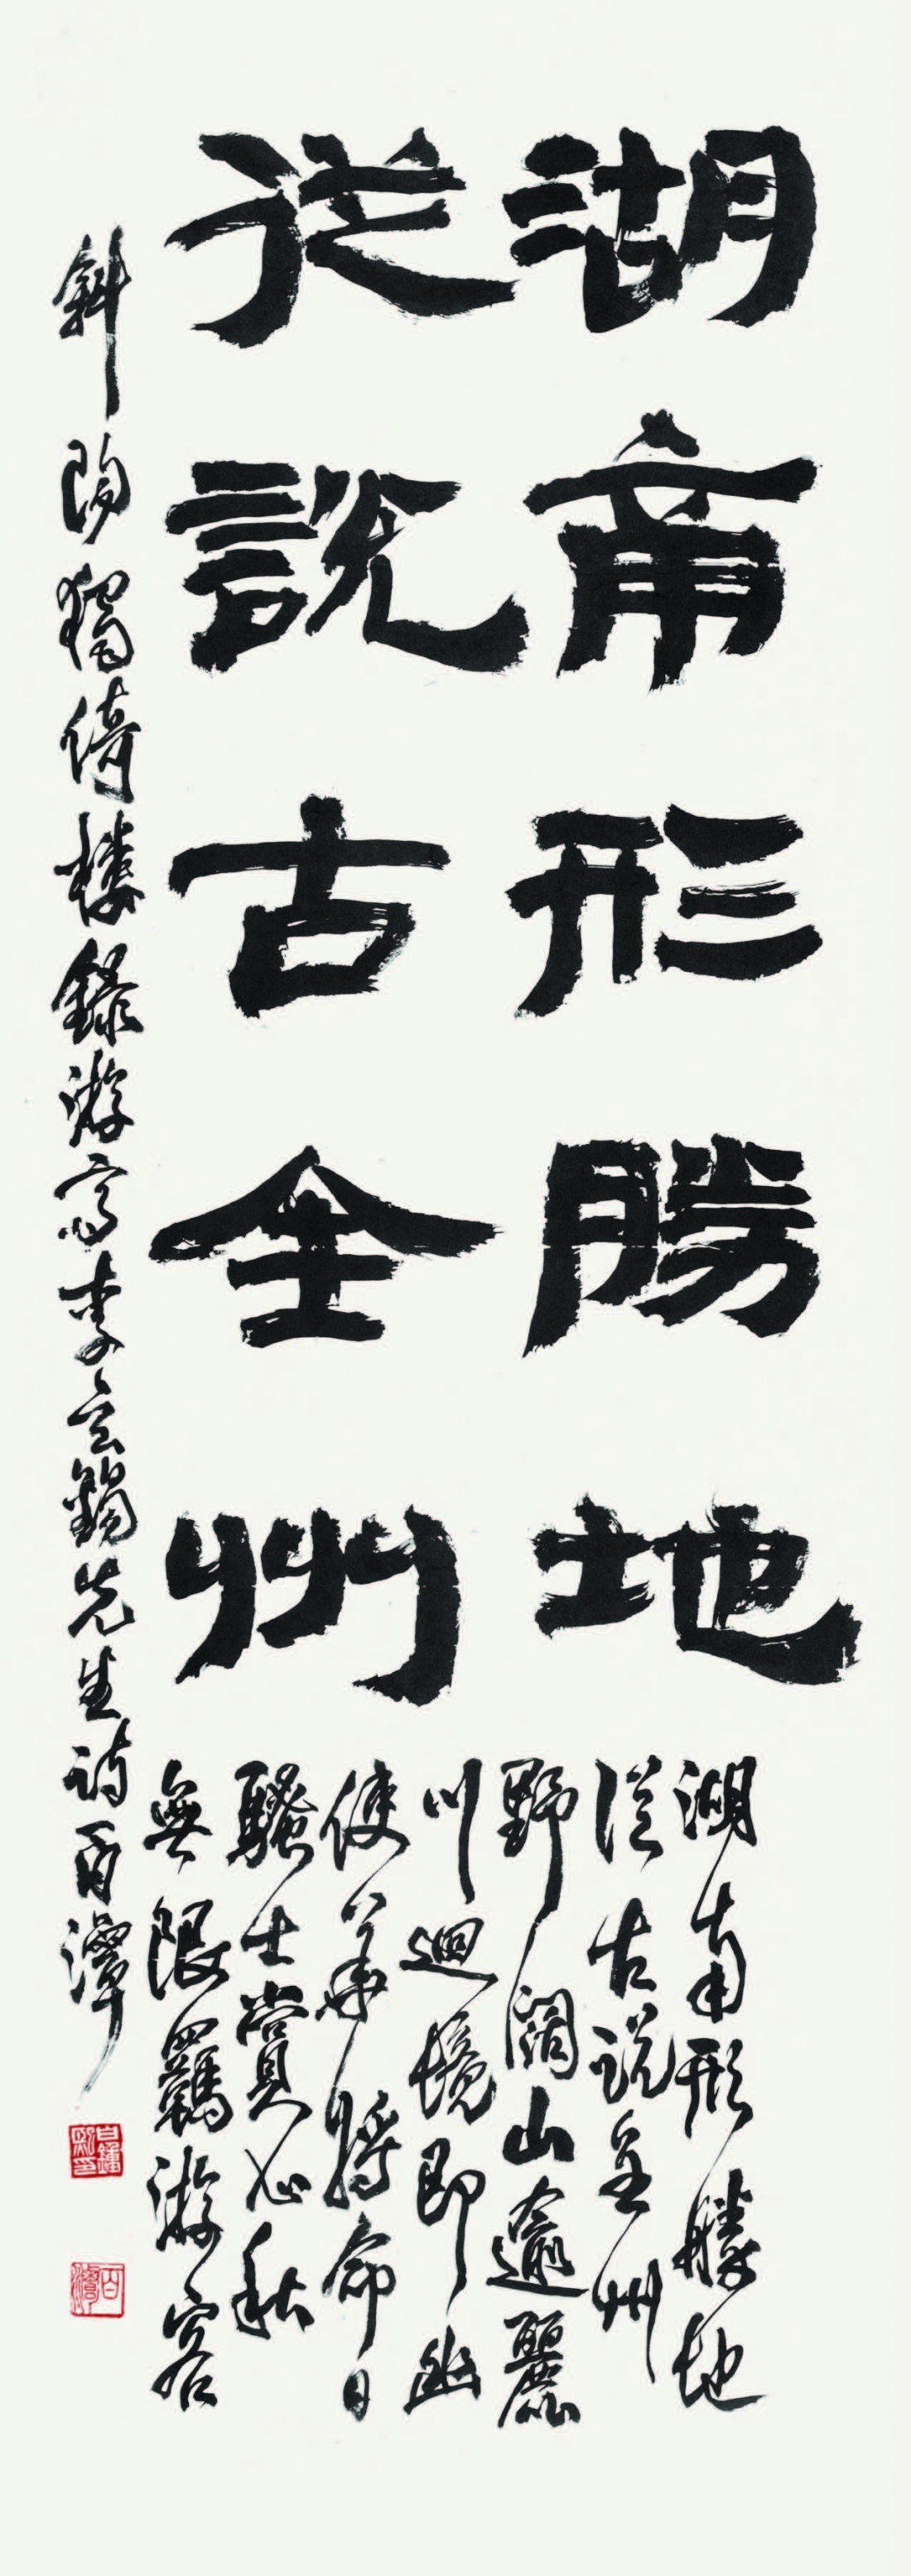 湖南形勝地
從説古全州
湖南形勝地
從古説全州
野闊山逾麗
川迴境即幽
使華將命日
騷士賞心秋
無限羈游客
斜陽獨倚樓錄游高李玄錫先生詩百潭